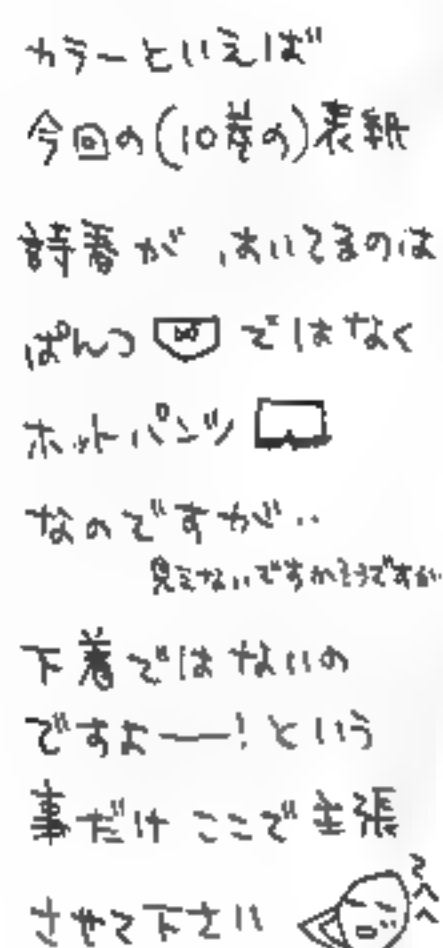 カラーといえば
今回の(10巻の)表紙
詩春が はいてるのは
ぱんつ ではなく
ホットパンツ
なのですが‥
見えないですかそうですか
下着ではないの
ですよ——!という
事だけ ここで主張
させて下さい